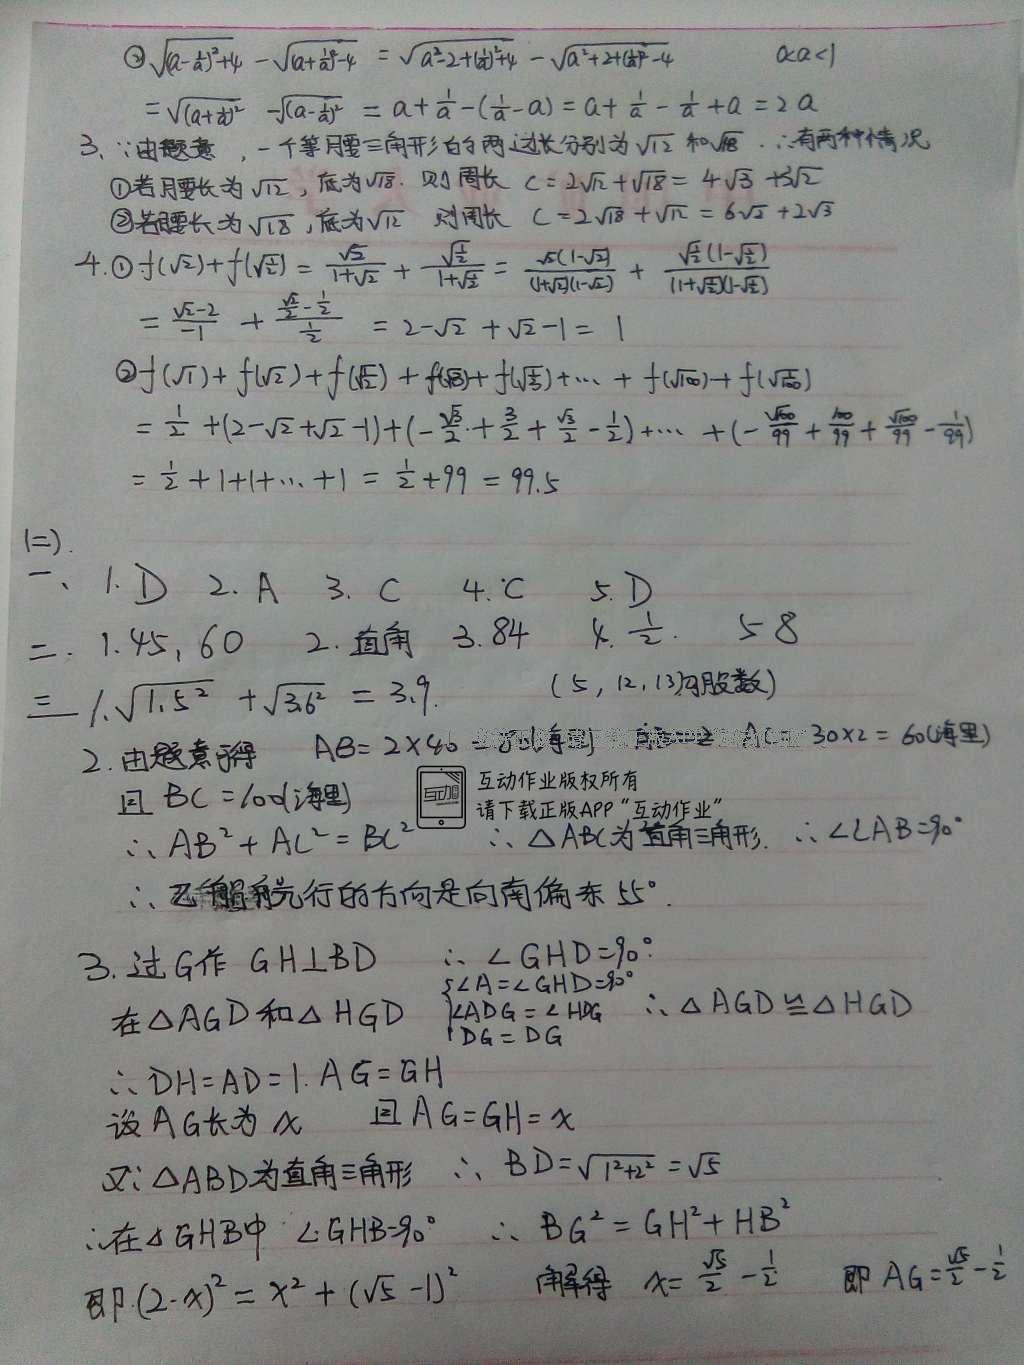 ② √(a-1/a)²+4 - √(a+1/a)²-4 = √a²-2+(1/a)²+4 - √a²+2+(1/a)²-4 0<a<1
= √(a+1/a)² - √(a-1/a)² = a+1/a-(1/a-a) = a+1/a-1/a+a = 2a
3、∵由题意,一个等腰三角形的两边长分别为√12和√18.∴有两种情况
①若腰长为√12,底为√18.则周长 C=2√12+√18=4√3+3√2
②若腰长为√18,底为√12 则周长 C=2√18+√12=6√2+2√3
4.①f(√2)+f(√1/2)=√2/(1+√2)+√1/2/(1+√1/2)=√2(1-√2)/(1+√2)(1-√2)+√1/2(1-√1/2)/(1+√1/2)(1-√1/2)
=(√2-2)/-1+(√2/2-1/2)/(1/2)=2-√2+√2-1=1
②f(√1)+f(√2)+f(√1/2)+f(√3)+f(√1/3)+…+f(√100)+f(√1/100)
=1/2+(2-√2+√2-1)+(-√3/2+3/2+√3/2-1/2)+…+(-√100/99+100/99+√100/99-1/99)
=1/2+1+1+…+1=1/2+99=99.5
(二).
一、1.D 2.A 3.C 4.C 5.D
二.1.45,60 2.直角 3.84 4.1/2. 5 8
三 1.√1.5²+√3.6²=3.9. (5,12,13勾股数)
2.由题意可得 AB=2×40=80(海里) 30×2=60(海里)
且BC=100(海里)
互动作业版权所有
请下载正版APP“互动作业”
∴AB²+AC²=BC² ∴△ABC为直角三角形.∴∠CAB=90°
∴乙船航行的方向是向南偏东55°.
3.过G作GH⊥BD ∴∠GHD=90°.
在△AGD和△HGD {∠A=∠GHD=90° ∠ADG=∠HDG DG=DG ∴△AGD≌△HGD
∴DH=AD=1.AG=GH
设AG长为x 且AG=GH=x
又∵△ABD为直角三角形 ∴BD=√1²+2²=√5
∴在△GHB中 ∠GHB=90° ∴BG²=GH²+HB²
即(2-x)²=x²+(√5-1)² 解得 x=√5/2-1/2 即AG=√5/2-1/2